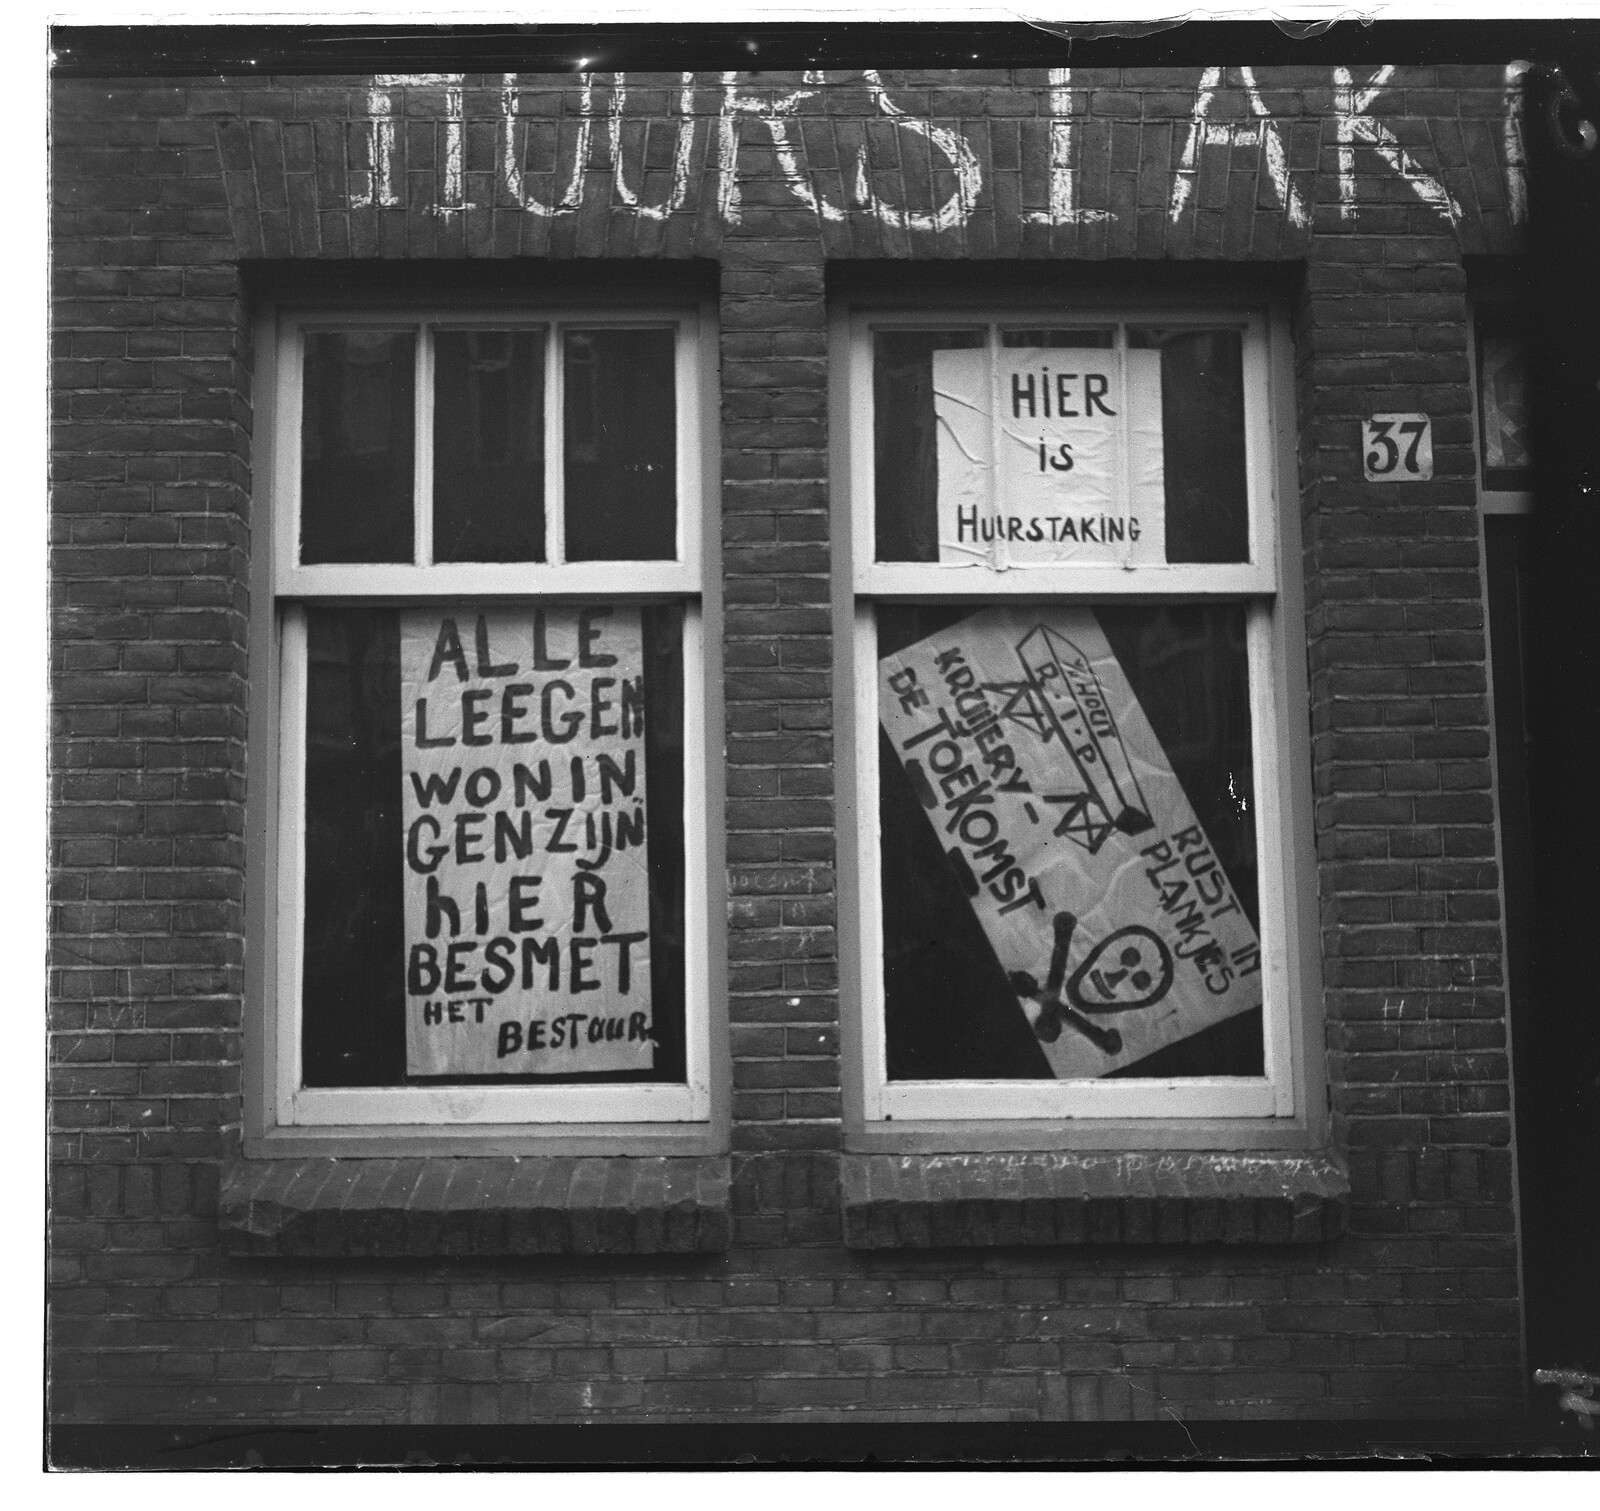 HUURSTAK
HIER
is
HUURSTAKING
37
ALLE
LEEGEN
WONIN
GEN ZIJN
hIER
BESMET
HET
BESTUUR
V/HOUT
R.I.P
KRUIERY-
DE TOEKOMST
RUST IN
PLANKJES